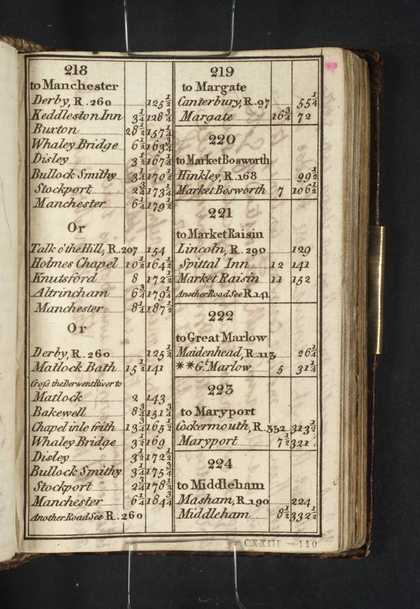 218
to Manchester
Derby, R. 260 125½
Keddleston Inn 3¼ 128¾
Buxton 28½ 157¼
Whaley Bridge 6½ 163¾
Disley 3½ 167¼
Bullock Smithy 3¼ 170½
Stockport 2¾ 173¼
Manchester 6¼ 179½
Or
Talk o'the Hill, R. 207 154
Holmes Chapel 10½ 164½
Knutsford 8 172½
Altrincham 6¾ 179¼
Manchester 8¼ 187½
Or
Derby, R. 260 125½
Matlock Bath 15½ 141
Cross the Derwent River to
Matlock 2 143
Bakewell 8½ 151½
Chapel in le frith 165½
Whaley Bridge 3½ 169
Disley 3½ 172½
Bullock Smithy 3¼ 175¾
Stockport 2¾ 178½
Manchester 6¼ 184¾
Another Road See R. 260
219
to Margate
Canterbury, R. 97 55¼
Margate 16¾ 72
220
to Market Bosworth
Hinkley, R. 168 99½
Market Bosworth 7 106½
221
to Market Raisin
Lincoln, R. 290 129
Spittal Inn 12 141
Market Raisin 11 152
Another Road See R. 141
222
to Great Marlow
Maidenhead, R. 113 26¼
**Gt. Marlow 5 31¼
223
to Maryport
Cockermouth, R. 352 313½
Maryport 7½ 321
224
to Middleham
Masham, R. 190 224
Middleham 8½ 232½
CXXIII - 110